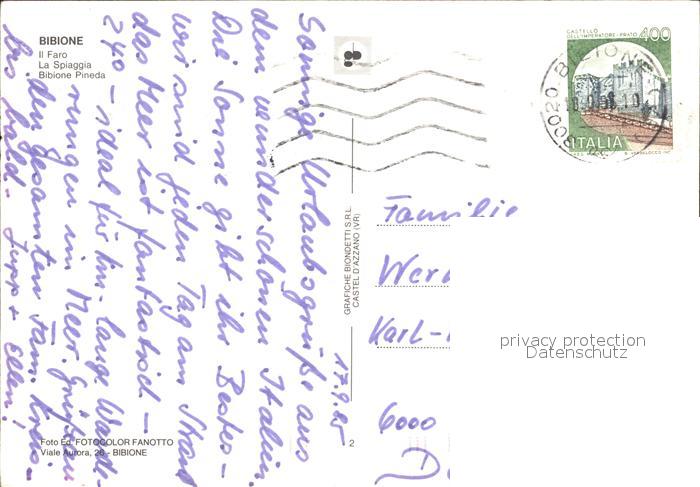 BIBIONE
Il Faro
La Spiaggia
Bibione Pineda
17.9.85
Sonnige Urlaubsgrüße aus
dem wunderschönen Italien.
Die Sonne gibt ihr Bestes -
wir sind jeden Tag am Strand
das Meer ist fantastisch -
24° - ideal für km-lange Wande-
rungen im Meer. Grüßen
den gesamten Fam. Kreis -
bis bald - Jupp + Ellen!
Foto Ed. FOTOCOLOR FANOTTO
Viale Aurora, 26 - BIBIONE
GRAFICHE BIONDETTI S.R.L.
CASTEL D'AZZANO (VR)
2
CASTELLO
DELL'IMPERATORE - PRATO
400
ITALIA
30020 BIBIONE
Familie
Karl-
6000
D
privacy protection
Datenschutz